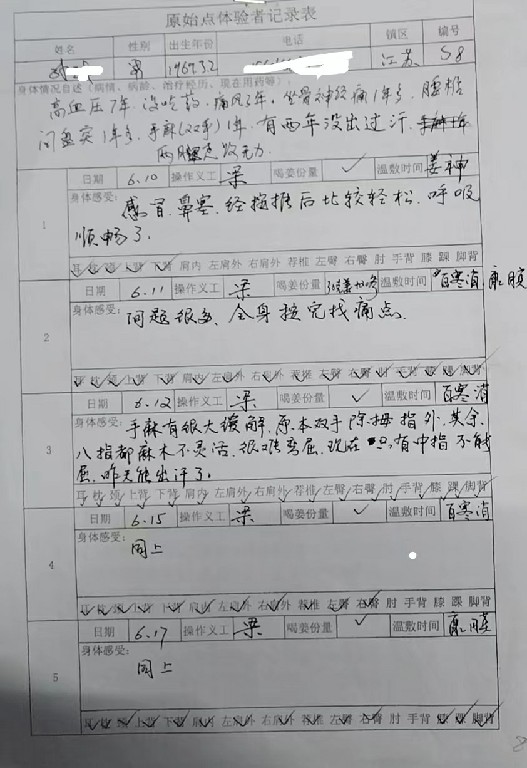 原始点体验者记录表
姓名 性别 出生年份 电话 镇区 编号
男 1967.3.2 江苏 58
身体情况自述(病情、病龄、治疗经历、现在用药等):
高血压7年.没吃药.痛风3年.坐骨神经痛1年多.腰椎
间盘突1年多.手麻(双手)1年.有两年没出过汗.
两腿走路无力.
日期 6.10 操作义工 梁 喝姜份量 ✓ 温敷时间 姜神
1
身体感受:
感冒鼻塞.经按推后比较轻松.呼吸
顺畅了.
耳 枕 颈 上背 下背 肩内 左肩外 右肩外 荐椎 左臀 右臀 肘 手背 膝 踝 脚背
日期 6.11 操作义工 梁 喝姜份量 温敷时间 百寒消 康膜
2
身体感受:
问题很多.全身按完找痛点.
耳 枕 颈 上背 下背 肩内 左肩外 右肩外 荐椎 左臀 右臀 肘 手背 膝 踝 脚背
日期 6.12 操作义工 梁 喝姜份量 ✓ 温敷时间 百寒消
3
身体感受:
手麻有很大缓解.原本双手除拇指外.其余
八指都麻木不灵活.很难弯屈.现在只有中指不能
屈.昨天能出汗了.
耳 枕 颈 上背 下背 肩内 左肩外 右肩外 荐椎 左臀 右臀 肘 手背 膝 踝 脚背
日期 6.15 操作义工 梁 喝姜份量 ✓ 温敷时间 百寒消
4
身体感受:
同上
耳 枕 颈 上背 下背 肩内 左肩外 右肩外 荐椎 左臀 右臀 肘 手背 膝 踝 脚背
日期 6.17 操作义工 梁 喝姜份量 ✓ 温敷时间 康膜
5
身体感受:
同上
耳 枕 颈 上背 下背 肩内 左肩外 右肩外 荐椎 左臀 右臀 肘 手背 膝 踝 脚背